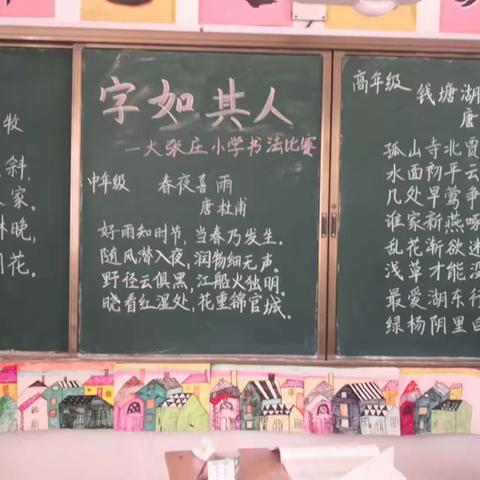 牧
斜,
家。
林晚,
花。
字如其人
—大张庄小学书法比赛
中年级 春夜喜雨
唐杜甫
好雨知时节,当春乃发生。
随风潜入夜,润物细无声。
野径云俱黑,江船火独明。
晓看红湿处,花重锦官城。
高年级 钱塘湖
唐
孤山寺北贾
水面初平云
几处早莺争
谁家新燕啄
乱花渐欲迷
浅草才能没
最爱湖东行
绿杨阴里白